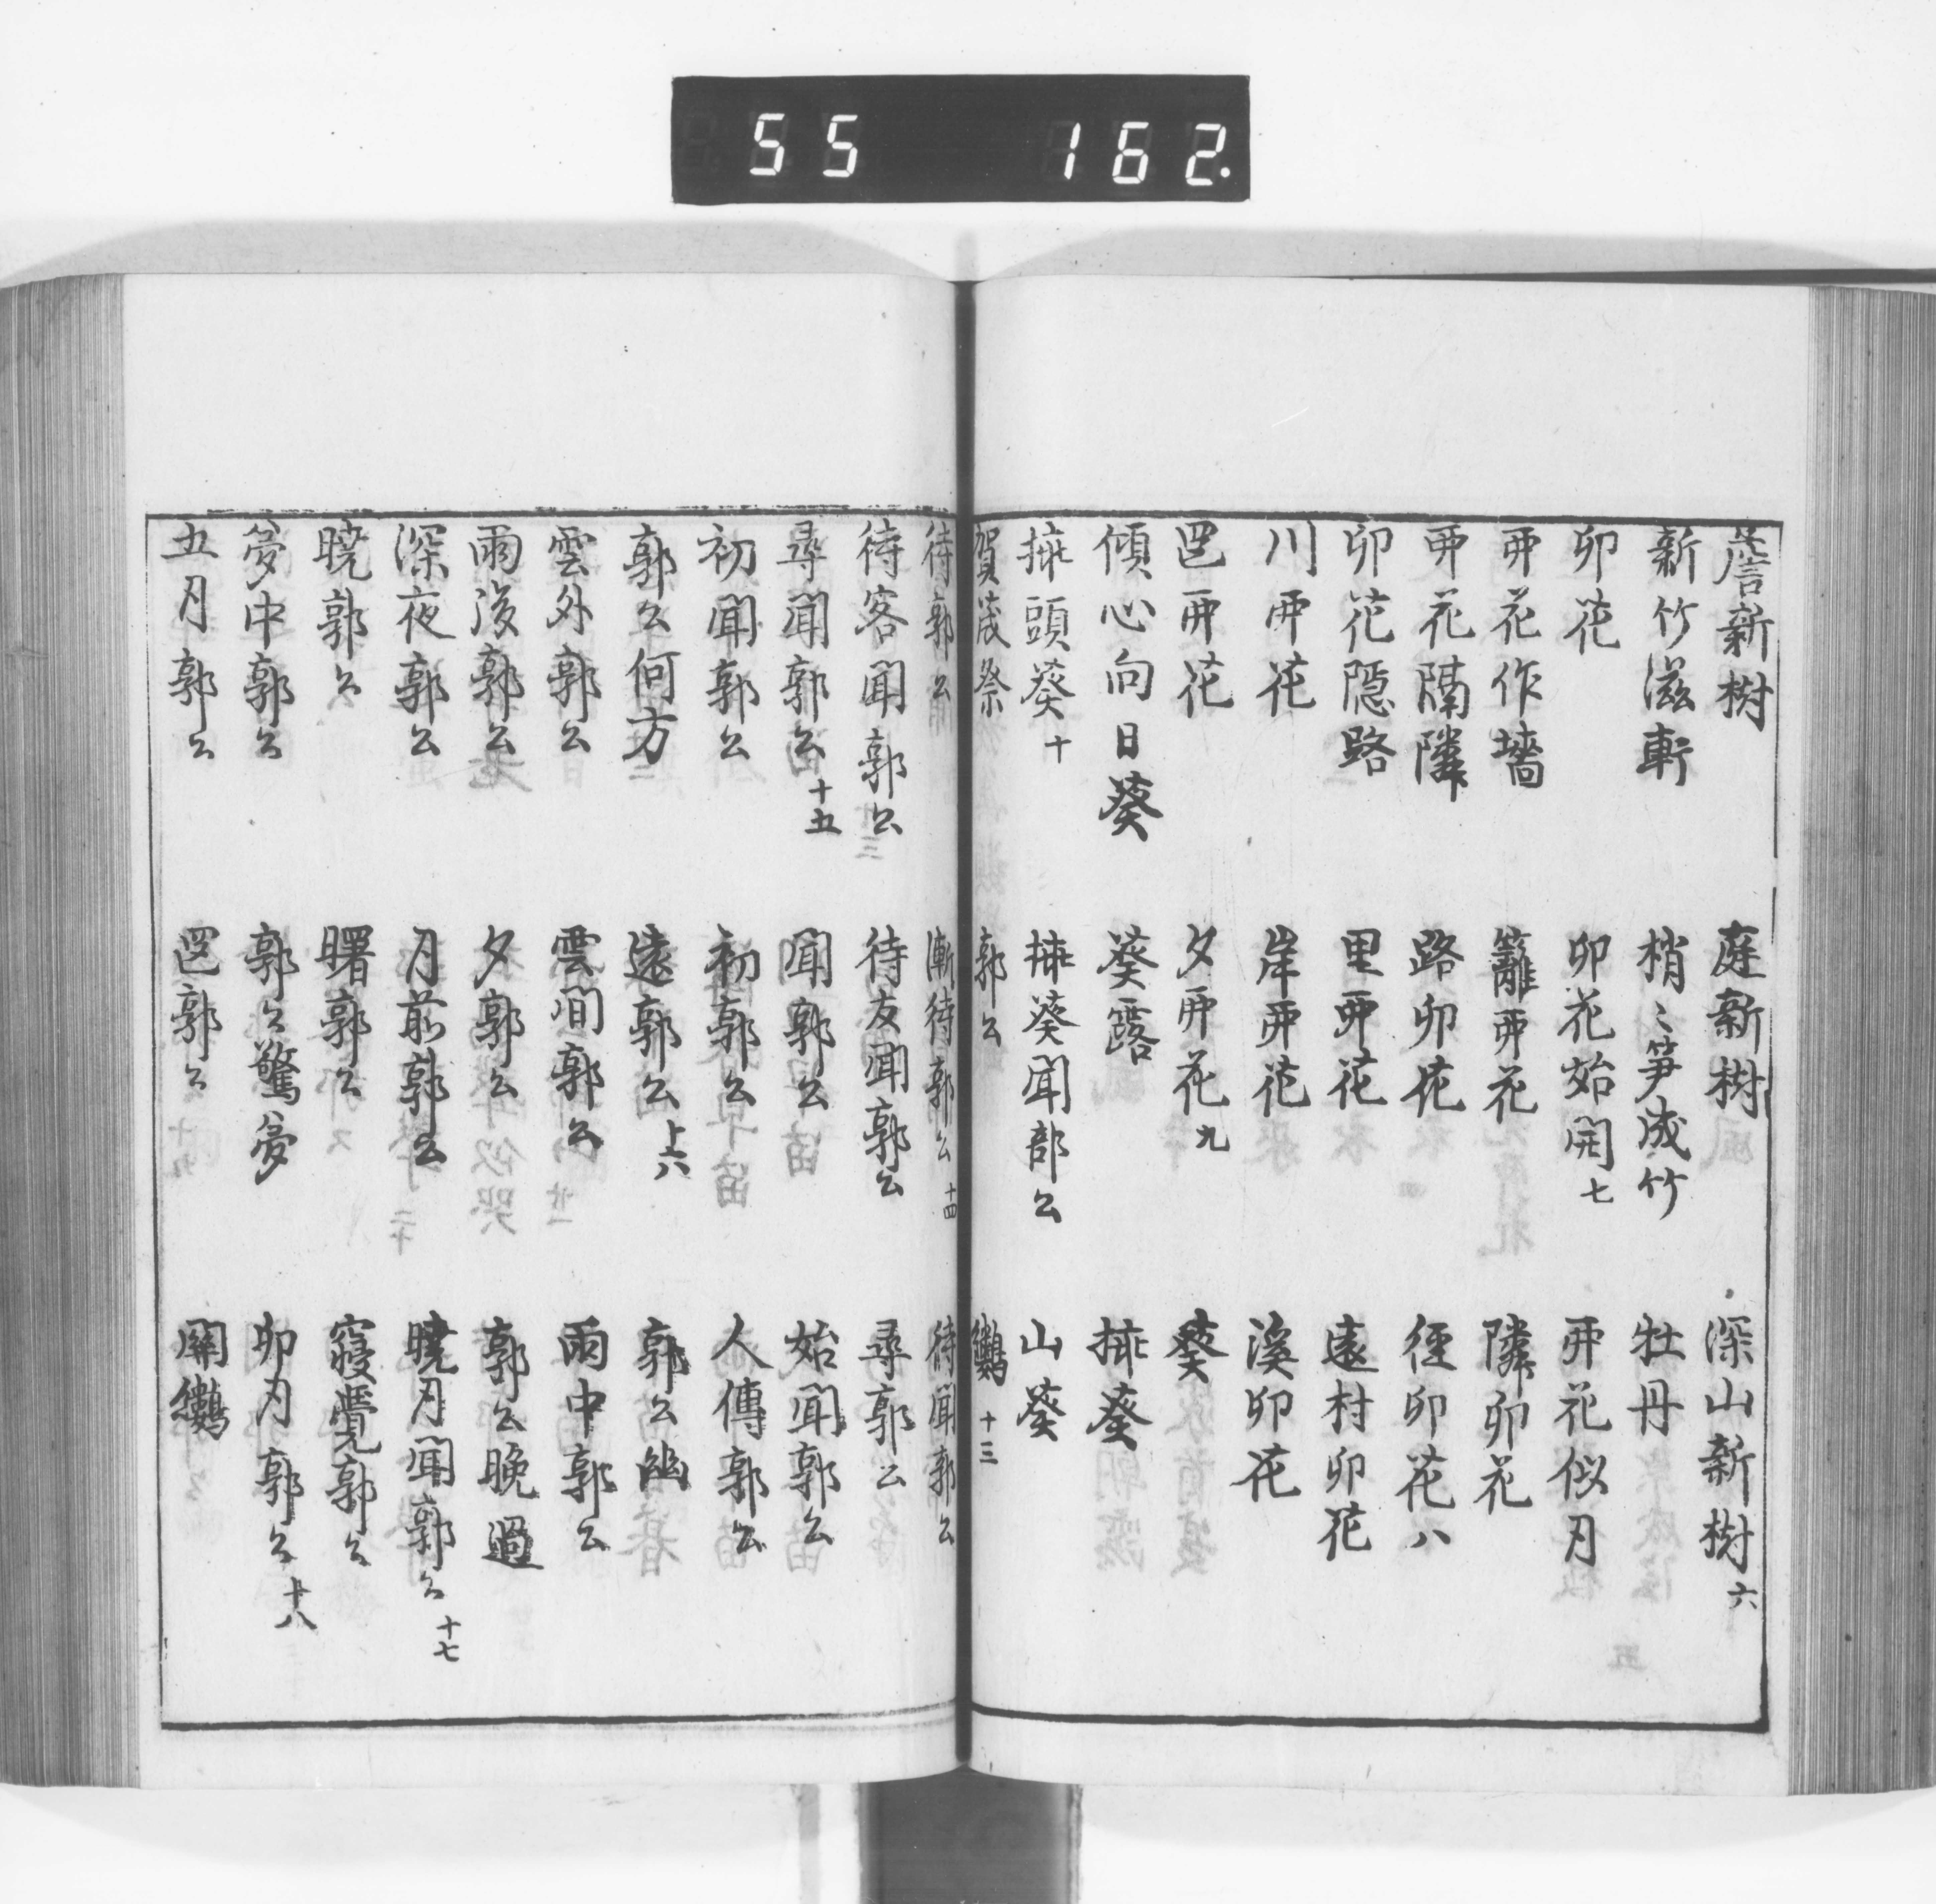 55 162.
簷新樹 庭新樹 深山新樹 六
新竹滋軒 梢〻笋成竹 牡丹
卯花 卯花始開 七 卯花似月
卯花作墻 籬卯花 隣卯花
卯花隔隣 路卯花 径卯花 八
卯花隠路 里卯花 遠村卯花
川卯花 岸卯花 溪卯花
卯花 夕卯花 九 葵
傾心向日葵 葵露 挿葵
挿頭葵 十 挿葵聞郭公 山葵
賀茂祭 郭公 十三
待郭公 漸待郭公 十四 待聞郭公
待客聞郭公 待友聞郭公 尋郭公
尋聞郭公 十五 聞郭公 始聞郭公
初聞郭公 初郭公 人傳郭公
郭公何方 遠郭公 十六 郭公幽
雲外郭公 雲間郭公 雨中郭公
雨後郭公 夕郭公 郭公晩過
深夜郭公 月前郭公 曉月聞郭公 十七
曉郭公 曙郭公 寢覺郭公
夢中郭公 郭公驚夢 卯月郭公 十八
五月郭公 郭公